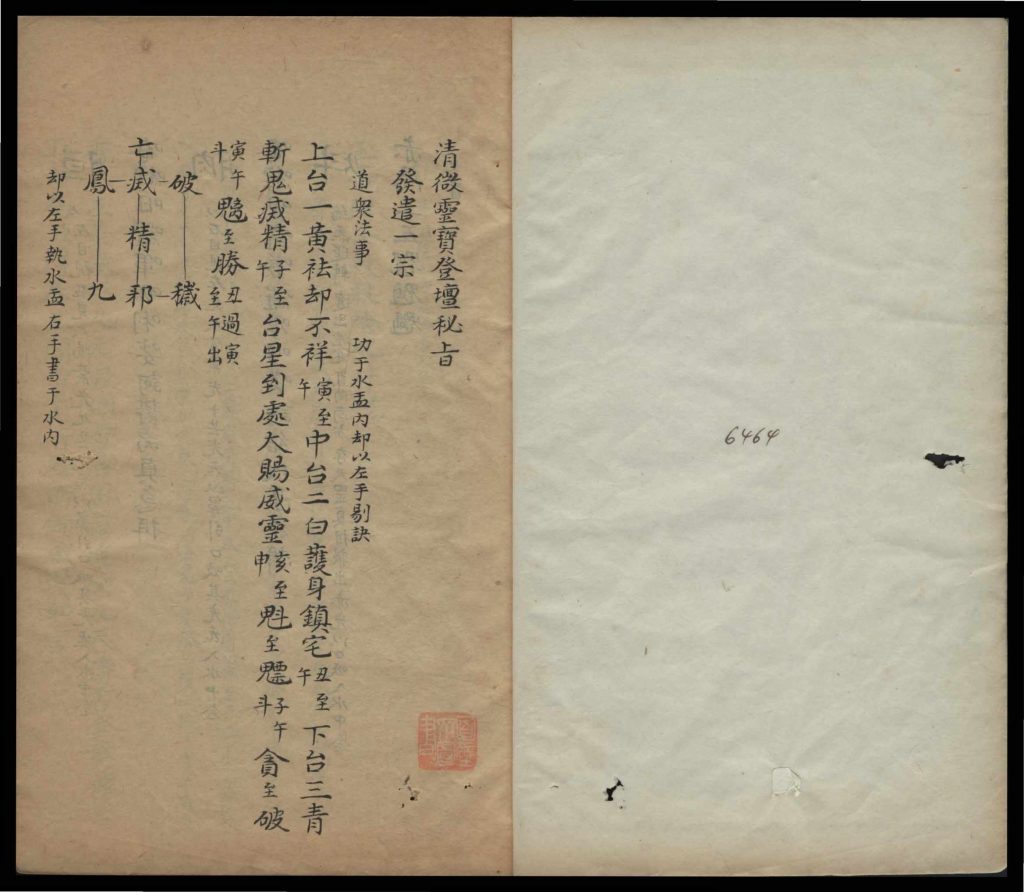 6464
清微靈寶登壇秘旨
發遣一宗
道衆法事 功于水盂内却以左手剔訣
上台一黄祛却不祥寅至午中台二白護身鎮宅丑至午下台三青
斬鬼滅精子至午台星到處大賜威靈亥至申魁至魒子午斗貪至破
寅午斗 至勝丑過寅至午出
破 穢
亡 滅 精 邪
鳳 九
却以左手執水盂右手書于水内